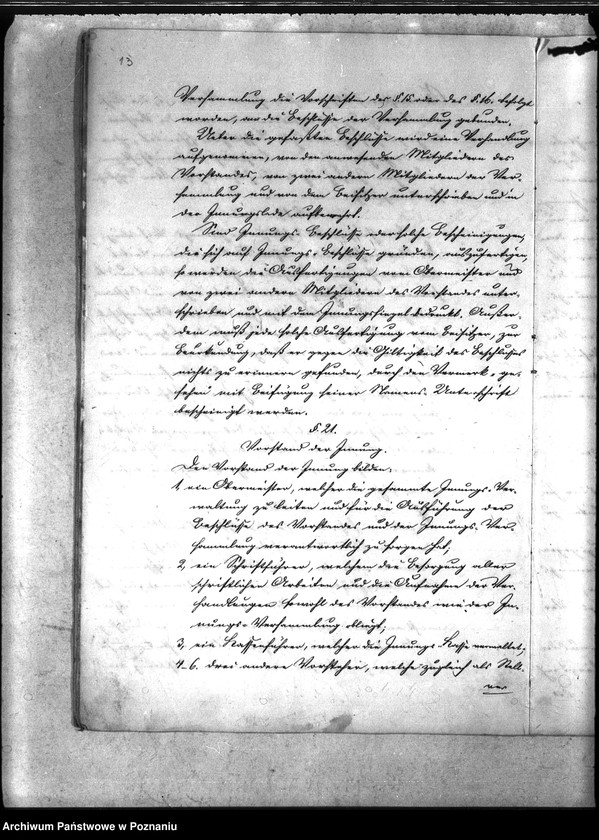 13
Versammlung die Vorschriften des §.15 oder des §.16. befolgt
worden, an die Beschlüsse der Versammlung gebunden.
Ueber die gefaßten Beschlüsse wird eine Verhandlung
aufgenommen, von den anwesenden Mitgliedern des
Vorstandes, von zwei andern Mitgliedern der Ver-
sammlung und von dem Beisitzer unterschrieben und in
der Innungslade aufbewahrt.
Sind Innungs-Beschlüsse oder solche Bescheinigungen,
die sich auf Innungs-Beschlüsse gründen, auszufertigen,
so werden die Ausfertigungen vom Obermeister und
von zwei andern Mitgliedern des Vorstandes unter-
schrieben und mit dem Innungssiegel bedruckt. Außer-
dem muß jede solche Ausfertigung vom Beisitzer, zur
Beurkundung, daß er gegen die Giltigkeit des Beschlusses
nichts zu erinnern gefunden, durch den Vermerk "ge-
sehen" mit Beifügung seiner Namens-Unterschrift
bescheinigt werden.
§. 21.
Vorstand der Innung.
Den Vorstand der Innung bilden:
1, ein Obermeister, welcher die gesammte Innungs-Ver-
waltung zu leiten und für die Ausführung der
Beschlüsse des Vorstandes und der Innungs-Ver-
sammlung verantwortlich zu sorgen hat;
2, ein Schriftführer, welchem die Besorgung aller
schriftlichen Arbeiten und die Aufnahme der Ver-
handlungen sowohl des Vorstandes wie der In-
nungs-Versammlung obliegt;
3, ein Kassenführer, welcher die Innungs-Kasse verwaltet;
4-6. drei andere Vorsteher, welche zugleich als Stell-
ver
Archiwum Państwowe w Poznaniu